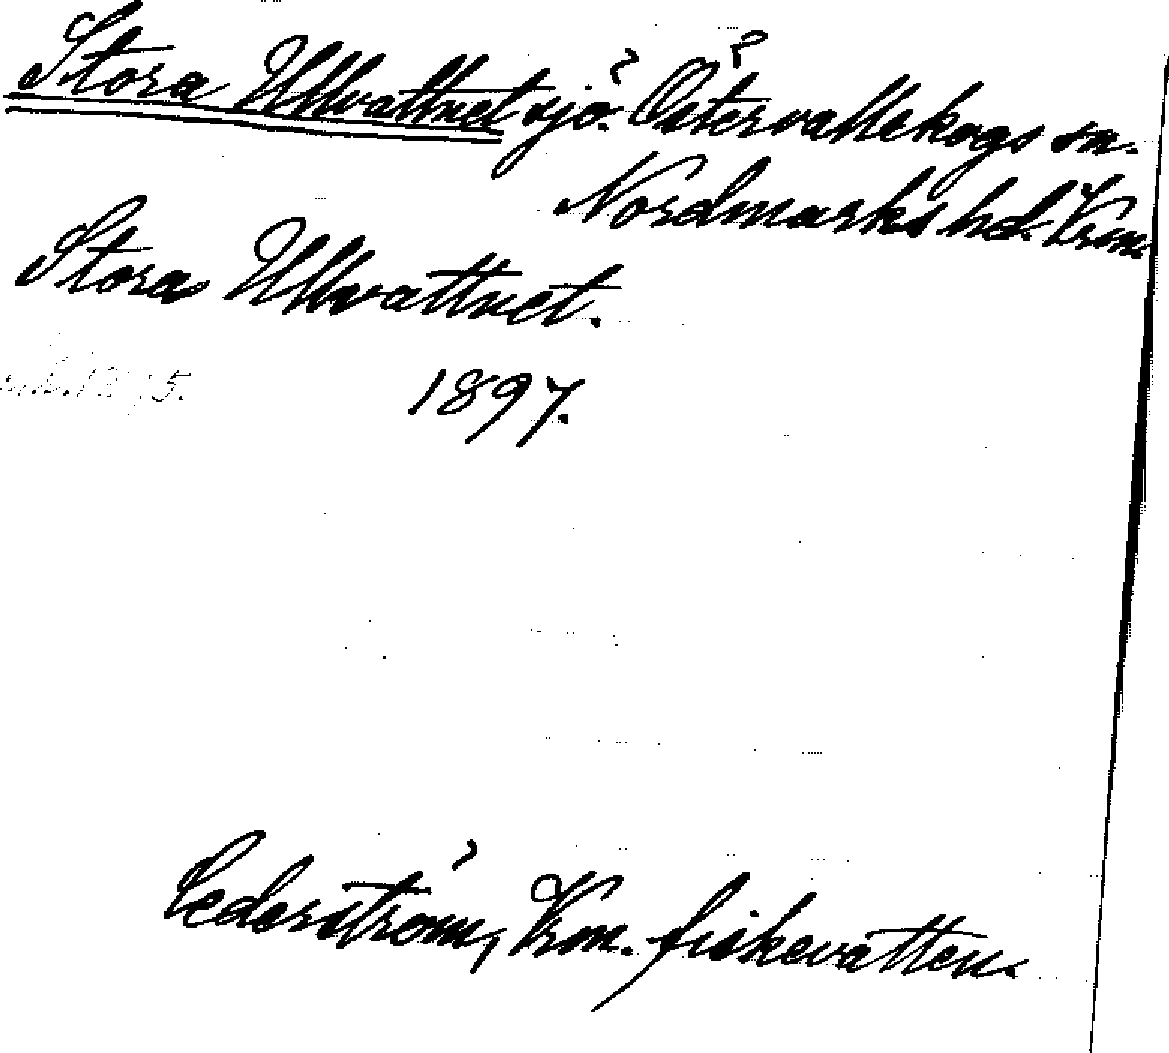 Stora Ullvattnet sjö. Östervallskogs sn.
Nordmarks hd. Vrm.
Stora Ullvattnet.
1897.
Cederström, Vrm. fiskevatten.